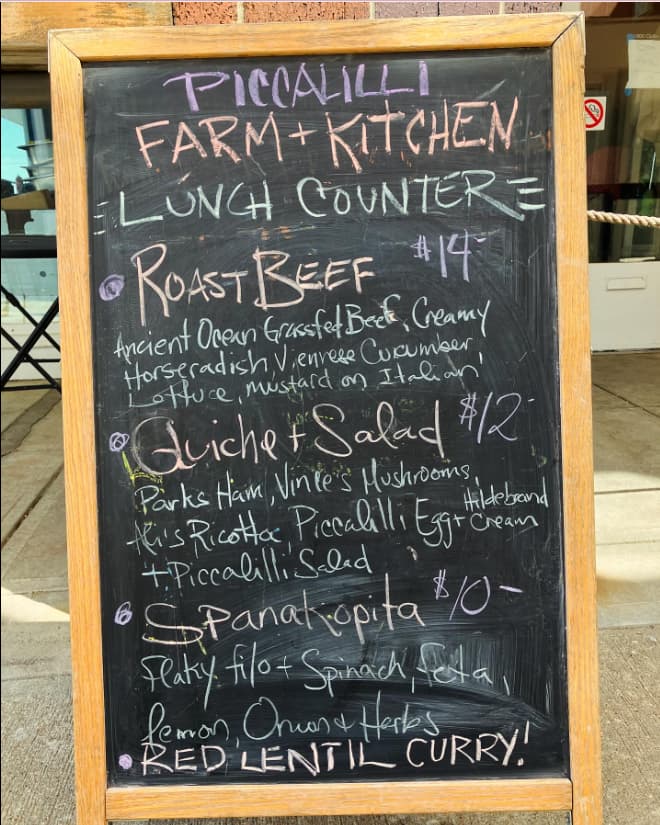 PICCALILLI
FARM + KITCHEN
LUNCH COUNTER
ROAST BEEF $14-
Ancient Ocean Grassfed Beef, Creamy
Horseradish, Viennese Cucumber
Lettuce, mustard on Italian
Quiche + Salad $12-
Parks Ham, Vince's Mushrooms,
Ricotta, Piccalilli Egg + Hildebrand Cream
+ Piccalilli Salad
Spanakopita $10-
Flaky filo + Spinach, feta,
lemon, Onion & Herbs
RED LENTIL CURRY!